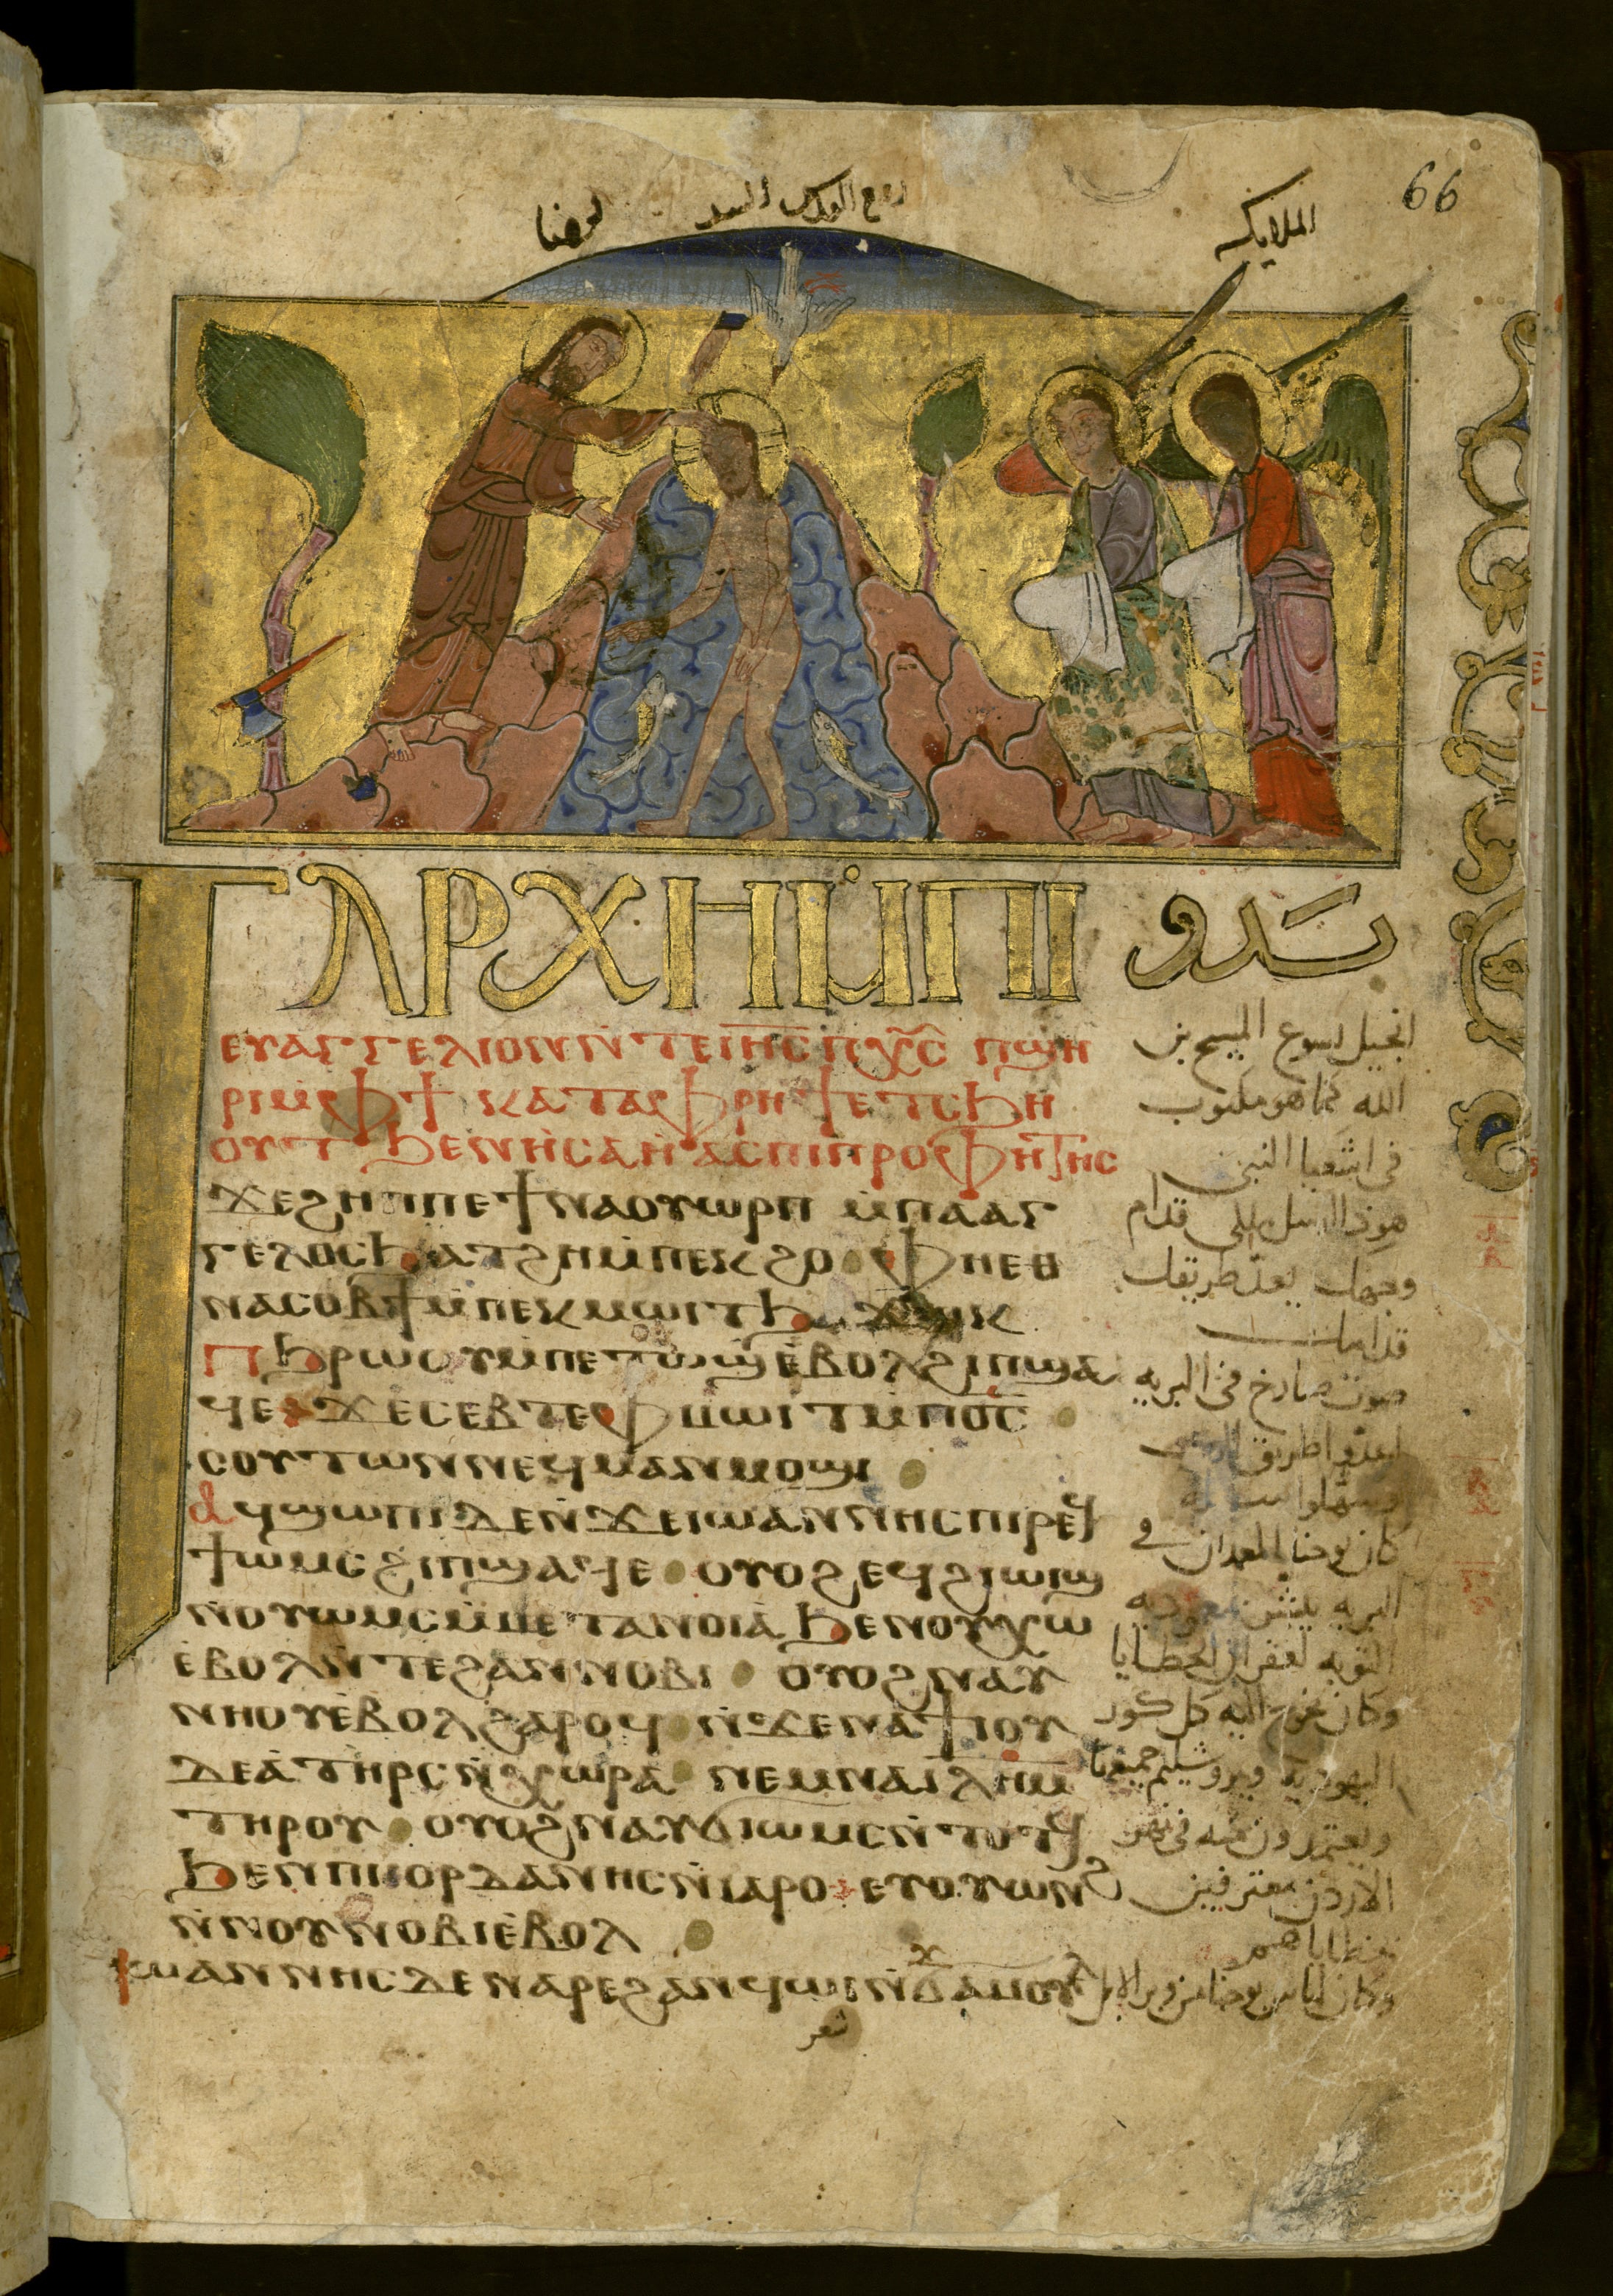 66
الملايكه
روح القدس السيد
يوحنا
ⲦⲀⲢⲬⲎⲘ̇ⲠⲒ
ⲉⲩⲁⲅⲅⲉⲗⲓⲟⲛⲛ̇ⲧⲉⲓⲏ̅ⲥ̅ⲡⲭ̅ⲥ̅ ⲡϣⲏ
ⲣⲓⲙ̇ⲫϯ ⲕⲁⲧⲁⲫⲣⲏϯⲉⲧⲥϧⲏ
ⲟⲩⲧ ϧⲉⲛⲏ̇ⲥⲁⲏ̇ⲁⲥⲡⲓⲡⲣⲟⲫⲏⲧⲏⲥ
ϫⲉϩⲏⲡⲡⲉϯⲛⲁⲟⲩⲱⲣⲡ ⲙ̇ⲡⲁⲁⲅ
ⲅⲉⲗⲟⲥϧⲁⲧϩⲏⲙ̇ⲡⲉⲕϩⲟ ⲫⲏⲉⲑ
ⲛⲁⲥⲟⲃϯⲙ̇ⲡⲉⲕⲙⲱⲓⲧϧⲁϫⲱⲕ
ⲡϧⲣⲱⲟⲩⲙ̇ⲡⲉⲧⲱϣⲉ̇ⲃⲟⲗϩⲓⲡϣⲁ
ϥⲉ ϫⲉⲥⲉⲃⲧⲉⲫⲙⲱⲓⲧⲙ̇ⲡⲟ̅ⲥ̅
ⲥⲟⲩⲧⲱⲛⲛⲉϥⲙⲁⲛⲙⲟϣⲓ
ⲁϥϣⲱⲡⲓⲇⲉⲛ̇ϫⲉⲓⲱⲁⲛⲛⲏⲥⲡⲓⲣⲉϥ
ϯⲱⲙⲥϩⲓⲡϣⲁϥⲉ ⲟⲩⲟϩⲉϥϩⲓⲱⲓϣ
ⲛⲟⲩⲱⲙⲥⲙ̇ⲙⲉⲧⲁⲛⲟⲓⲁ̇ϧⲉⲛⲟⲩⲭⲱ
ⲉ̇ⲃⲟⲗⲛ̇ⲧⲉϩⲁⲛⲛⲟⲃⲓ ⲟⲩⲟϩⲛⲁⲩ
ⲛⲏⲟⲩⲉ̇ⲃⲟⲗϩⲁⲣⲟϥ ⲛ̇ϫⲉⲛⲁϯⲓⲟⲩ
ⲇⲉⲁ̇ⲧⲏⲣⲥⲛ̇ⲭⲱⲣⲁ ⲛⲉⲙⲛⲁⲓⲗⲏ̅ⲙ̅
ⲧⲏⲣⲟⲩ ⲟⲩⲟϩⲛⲁⲩϭⲓⲱⲙⲥⲛ̇ⲧⲟⲧϥ
ϧⲉⲛⲡⲓⲓⲟⲣⲇⲁⲛⲏⲥⲛ̇ⲓⲁⲣⲟ ⲉⲩⲟⲩⲱⲛϩ
ⲛ̇ⲛⲟⲩⲛⲟⲃⲓⲉ̇ⲃⲟⲗ
ⲓⲱⲁⲛⲛⲏⲥⲇⲉⲛⲁⲣⲉϩⲁⲛϥⲱⲓⲛ̇ϭⲁⲙⲟⲩⲗ
ϫ
شعر
بدو
انجيل يسوع المسيح بن
الله كما هو مكتوب
في اشعيا النبي
هوذا ارسل ملاكي قدام
وجهك يعد طريقك
قدامك
صوت صارخ في البريه
اعدوا طريق الرب
وسهلوا سبله
كان يوحنا المعمدان في
البريه يبشر بمعموديه
التوبه لغفران الخطايا
وكان يخرج اليه كل كور
اليهوديه ويروشليم جميعها
ويعتمدون منه في نهر
الاردن معترفين
بخطاياهم
وكان لباس يوحنا من وبر الابل